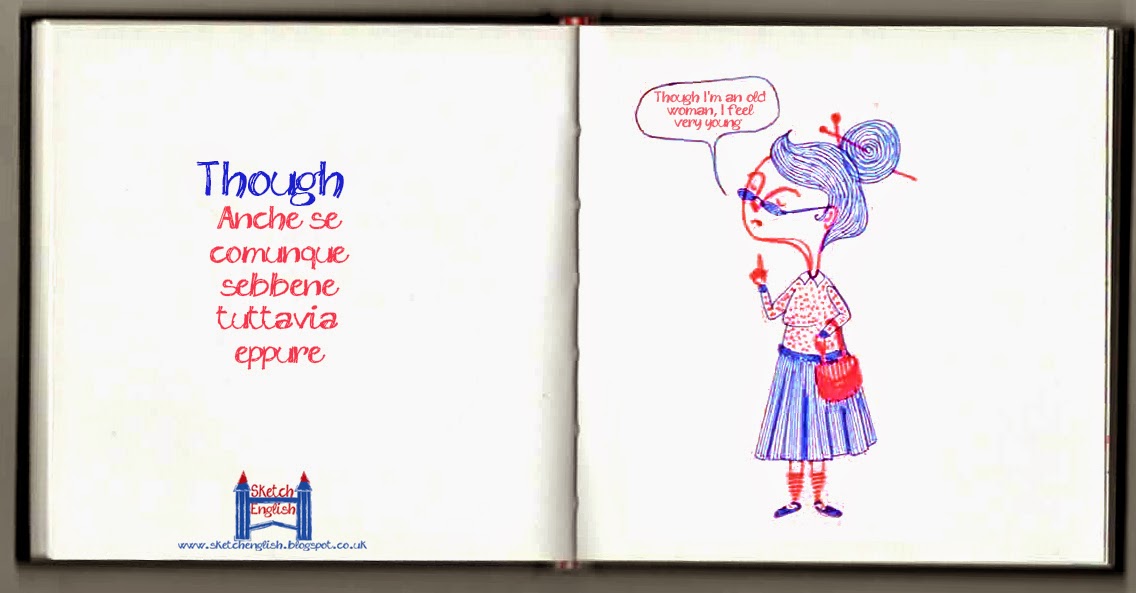 Though
Anche se
comunque
sebbene
tuttavia
eppure
Sketch
English
www.sketchenglish.blogspot.co.uk
Though I'm an old
woman, I feel
very young